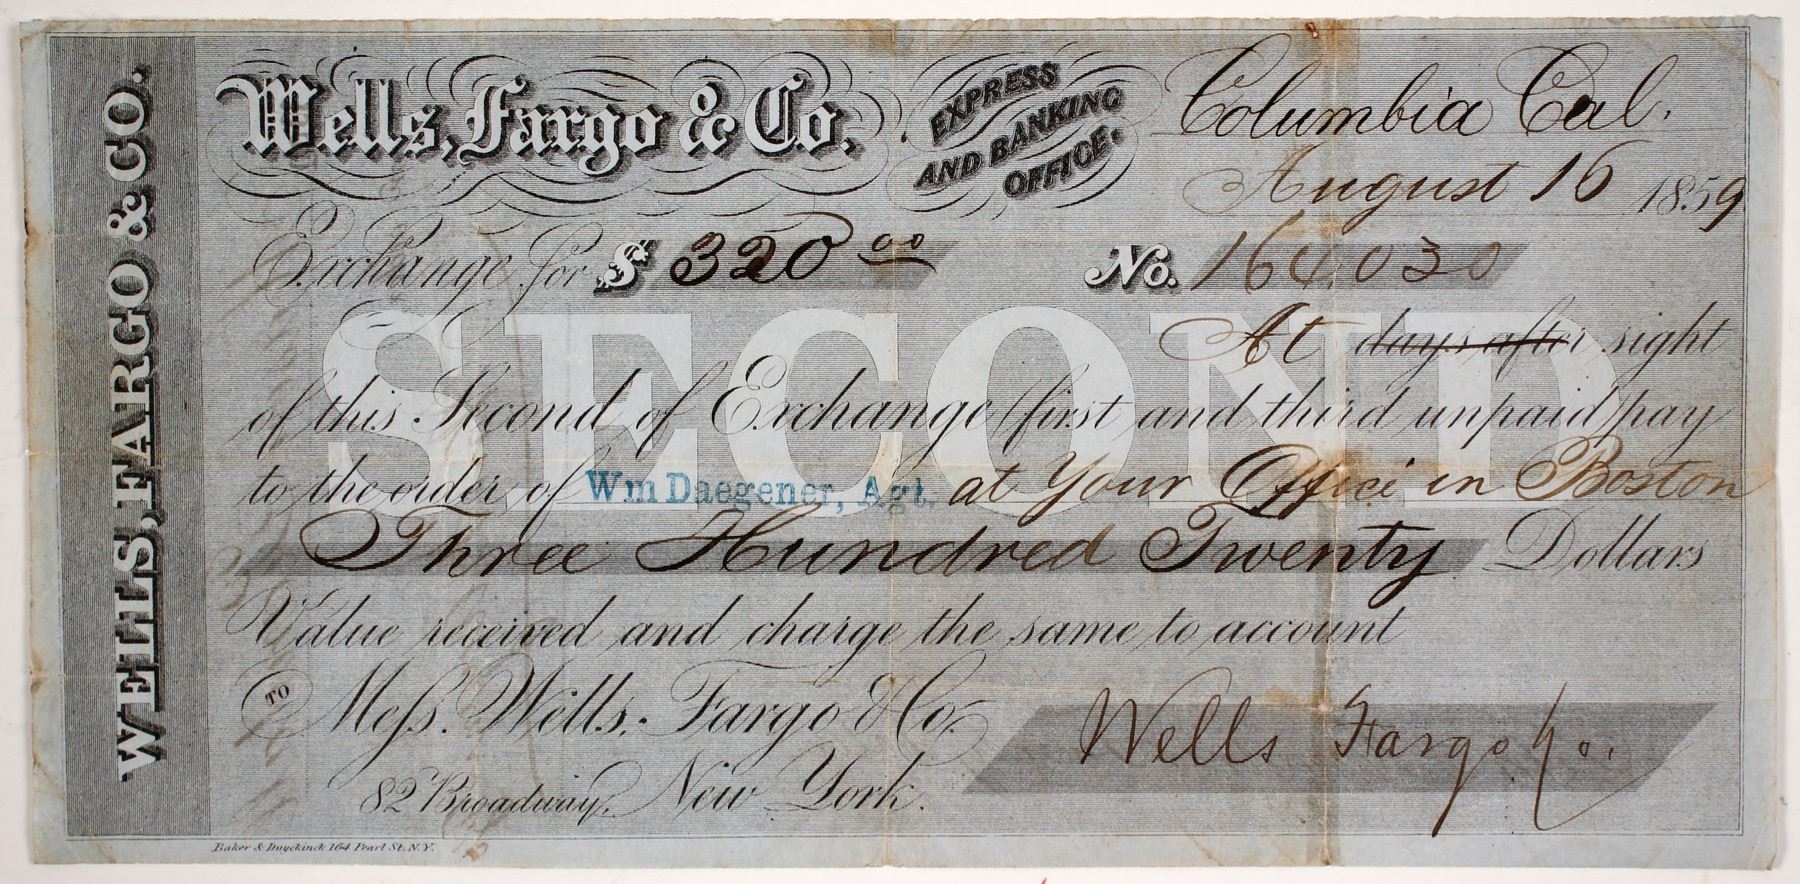 WELLS, FARGO & CO.
Wells, Fargo & Co.
EXPRESS
AND BANKING
OFFICE.
Columbia Cal.
August 16 1859
Exchange for $ 320 00 No. 164,030
SECOND
At days after sight
of this Second of Exchange (first and third unpaid) pay
to the order of Wm Daegener, Agt. at Your Office in Boston
Three Hundred Twenty Dollars
Value received and charge the same to account
TO Mess. Wells, Fargo & Co.
82 Broadway, New York.
Wells Fargo & Co.
Baker & Duyckinck 164 Pearl St. N.Y.